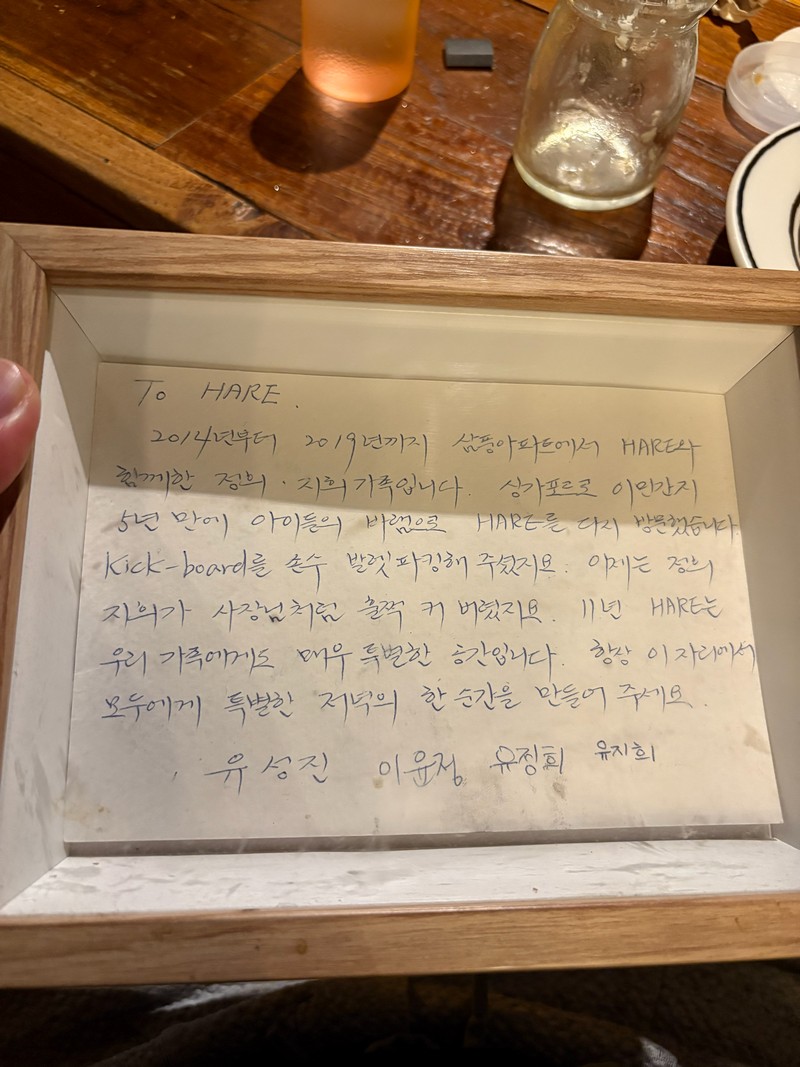 To HARE.
2014년부터 2019년까지 삼풍아파트에서 HARE와
함께한 정희·지희 가족입니다. 싱가포르로 이민간지
5년 만에 아이들의 바램으로 HARE를 다시 방문했습니다.
Kick-board를 손수 발렛파킹해 주셨지요. 이제는 정희
지희가 사장님처럼 훌쩍 커 버렸지요. 11년 HARE는
우리 가족에게도 매우 특별한 공간입니다. 항상 이 자리에서
모두에게 특별한 저녁의 한 순간을 만들어 주세요.
유성진 이윤정 유정희 유지희